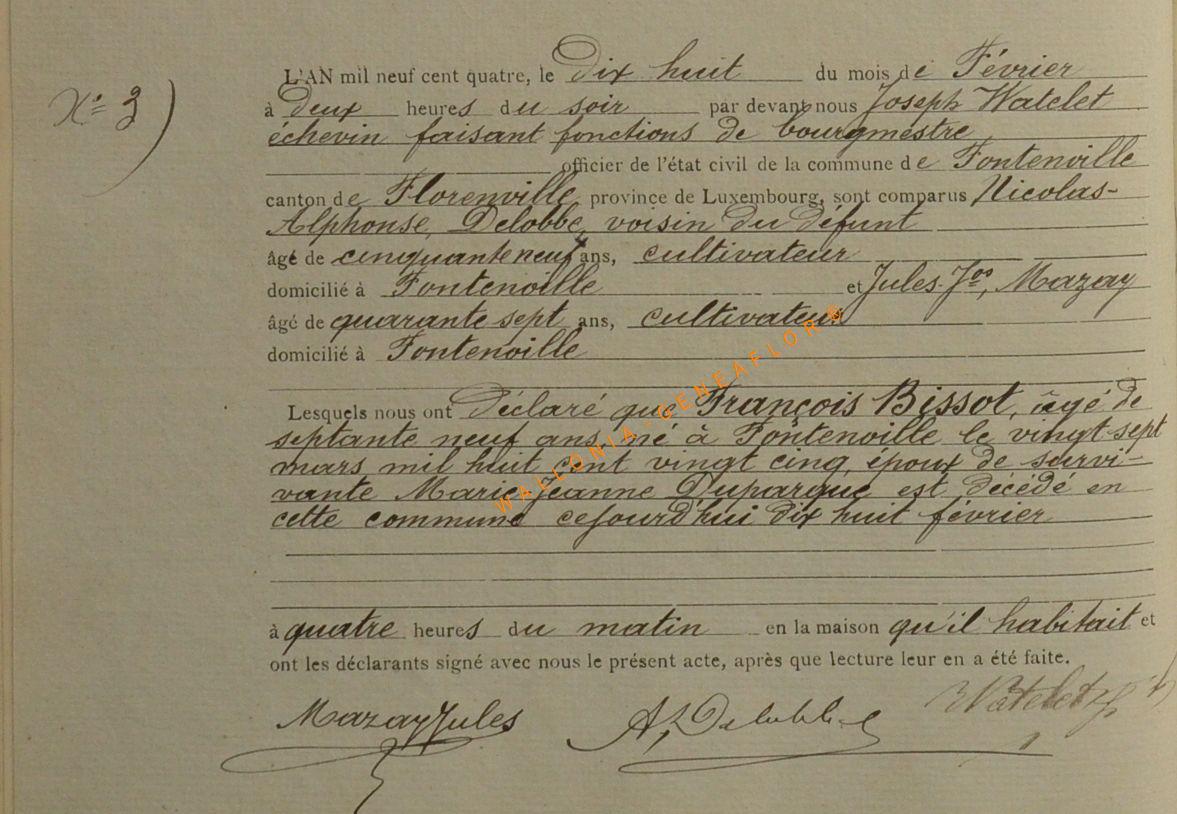 N° 3)
L'AN mil neuf cent quatre, le Dix huit du mois de Février
à Deux heures du soir par devant nous Joseph Watelet
échevin faisant fonctions de bourgmestre
officier de l'état civil de la commune de Fontenoille
canton de Florenville, province de Luxembourg, sont comparus Nicolas-
Alphonse, Delobbe, voisin du défunt
âgé de cinquante neuf ans, cultivateur
domicilié à Fontenoille et Jules-Jos, Mazay
âgé de quarante sept ans, cultivateur
domicilié à Fontenoille
Lesquels nous ont Déclaré que François Bissot, âgé de
septante neuf ans, né à Fontenoille le vingt-sept
mars mil huit cent vingt cinq, époux de survi-
vante Marie Jeanne Duparque est décédé en
cette commune cejourd'hui dix huit février
à quatre heures du matin en la maison qu'il habitait et
ont les déclarants signé avec nous le présent acte, après que lecture leur en a été faite.
Mazay Jules Delobbe Watelet
WALLONIA-GENEAFLOR©